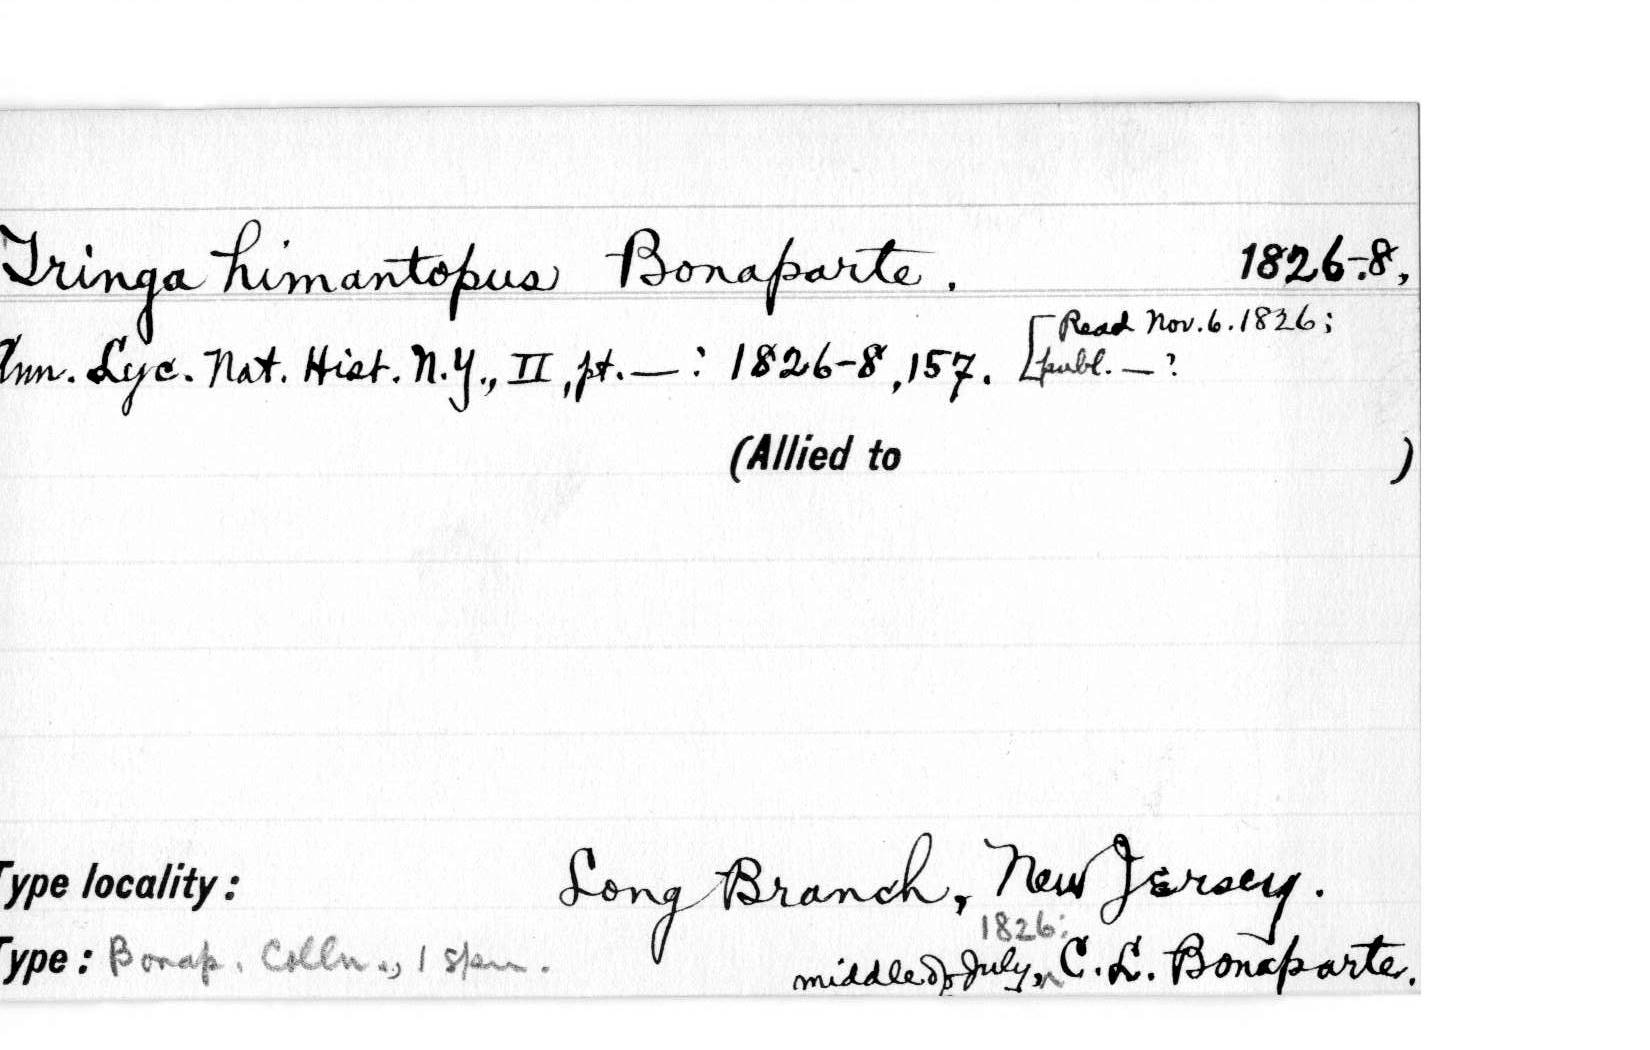 Tringa himantopus Bonaparte. 1826-8,
Ann. Lyc. Nat. Hist. N.Y., II, pt. — : 1826-8, 157. [Read Nov. 6. 1826;
publ. — ?
(Allied to )
Type locality: Long Branch, New Jersey.
1826;
Type: Bonap. Colln., 1 spm. middle of July, C. L. Bonaparte.